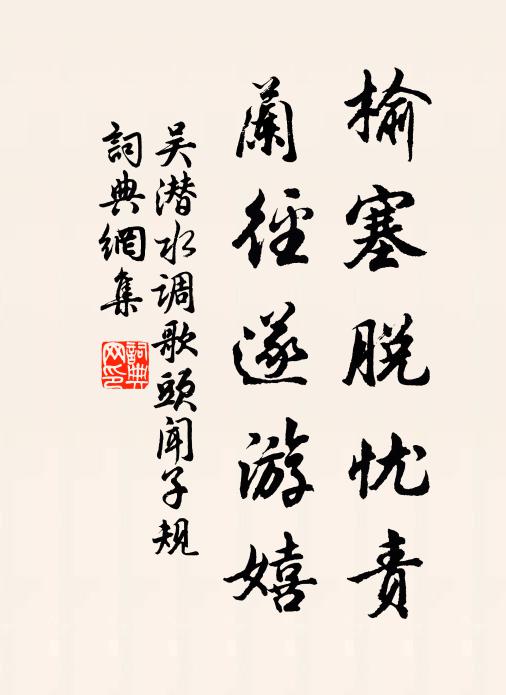 榆塞脱忧责
蘭徑遂游嬉
吴潜水调歌頭闻子规
詞典網集
詞典网印